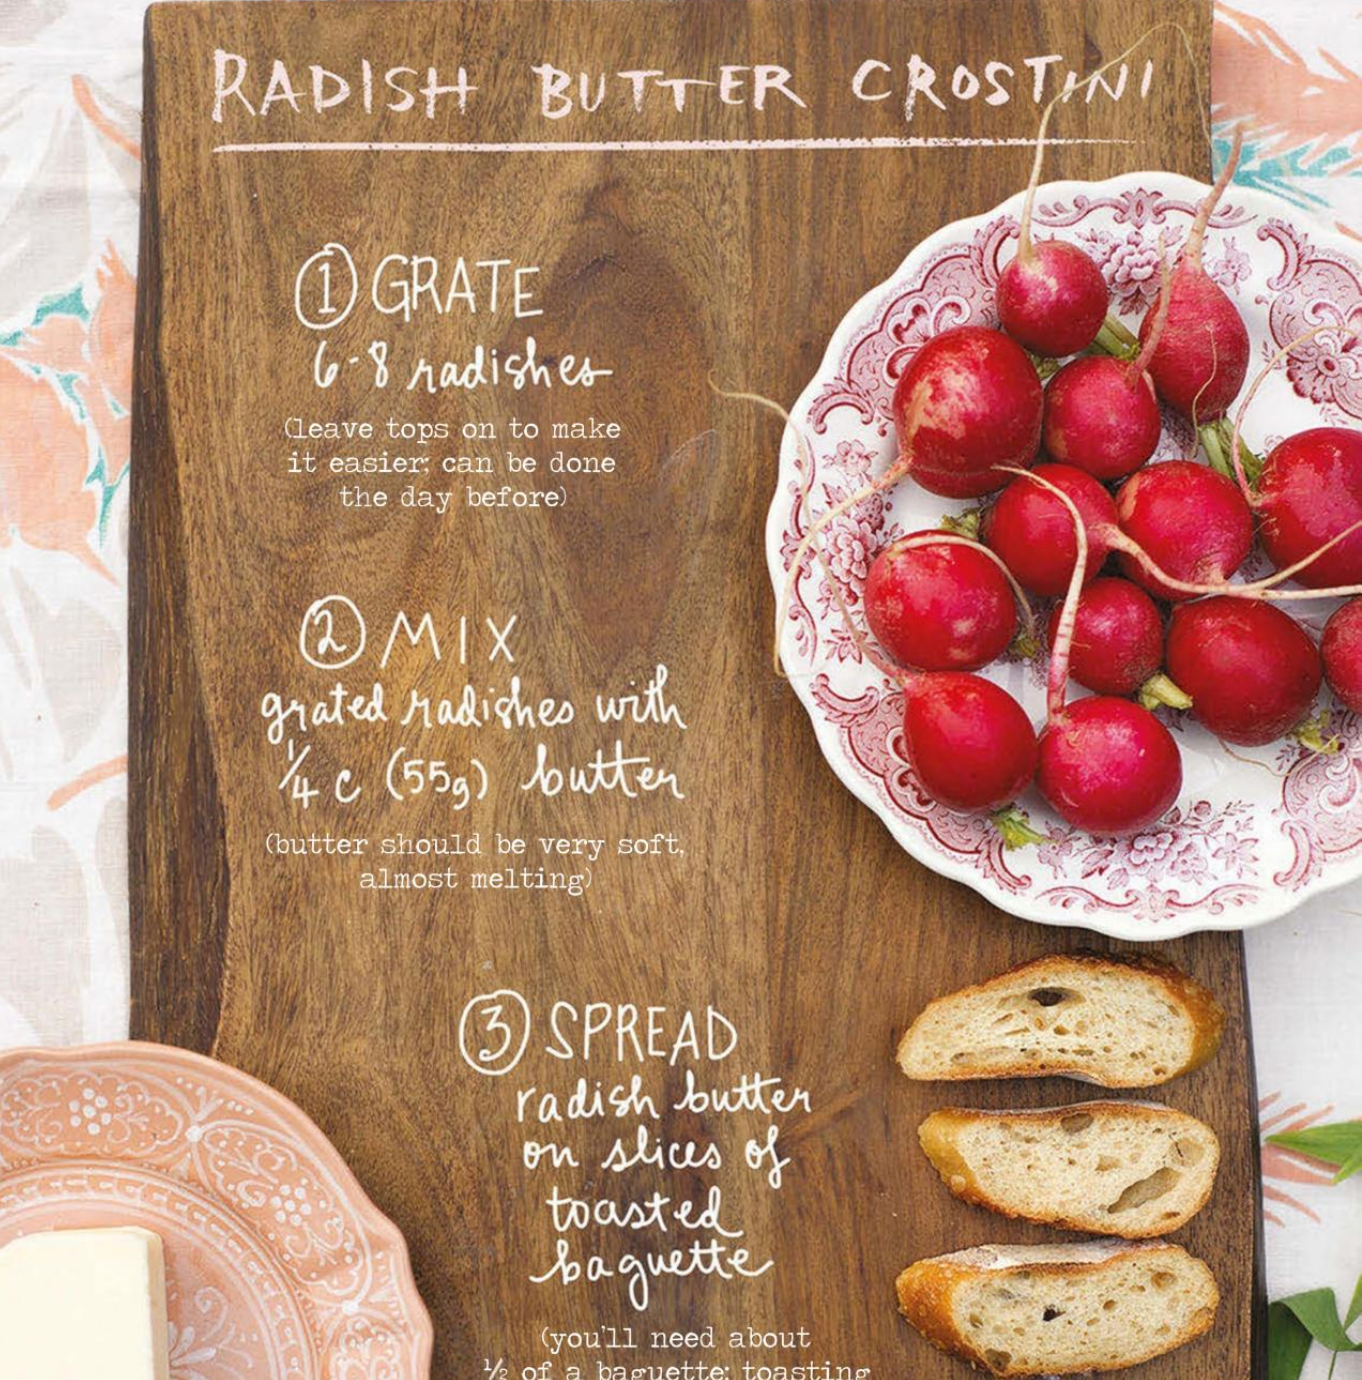 RADISH BUTTER CROSTINI
① GRATE
6-8 radishes
(leave tops on to make
it easier; can be done
the day before)
② MIX
grated radishes with
1/4 c (55g) butter
(butter should be very soft,
almost melting)
③ SPREAD
radish butter
on slices of
toasted
baguette
(you'll need about
½ of a baguette; toasting